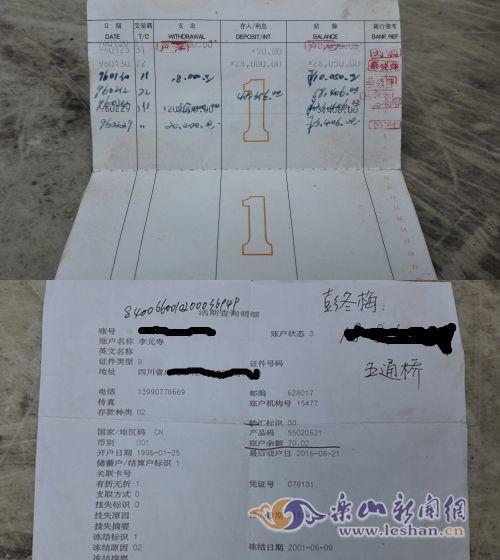 日期 交易码 支出 存入/利息 结余 银行备考
DATE T/C WITHDRAWAL DEPOSIT/INT BALANCE BANK REF
960123 31 ¥50.00 ¥50.00
960130 72 ¥28,000.00 ¥28,050.00
960130 11 18.000.00 ¥10.050.00
960212 72 48,356.00 58,406.00
960229 11
960229 11 20.000.00
1
1
活期查询明细
彭冬梅:
账号 账户状态 3
账户名称 李元寿
英文名称
证件类型 B 证件号码
地址 四川省 五通桥
电话 13990778669 邮编 628017
传真 账户机构号 15477
存款种类 02
标识 00
国家/地区码 CN 产品码 55020621
币别 001 账户余额 70.02
开户日期 1996-01-25 最后动户日 2016-06-21
储蓄户/结算户标识 1
关联卡号
有折无折 1 凭证号 078131
支取方式 0
挂失标识 0
挂失原因
挂失摘要
冻结标识 1
冻结原因 02 冻结日期 2001-06-09
冻结摘要
乐山新闻网
www.leshan.cn